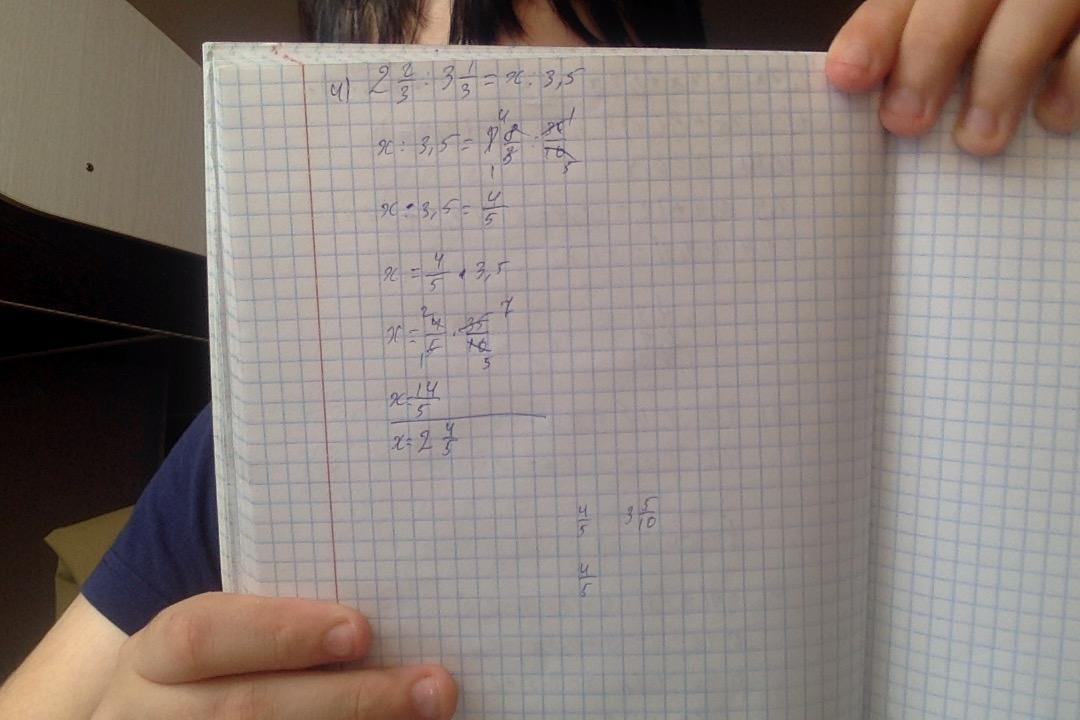 4) 2 2/3 : 3 1/3 = x : 3,5
x : 3,5 = 8/3 : 10
x : 3,5 = 4/5
x = 4/5 · 3,5
x = 4/5 · 35/10
x = 14/5
x = 2 4/5
4/5 3 5/10
4/5